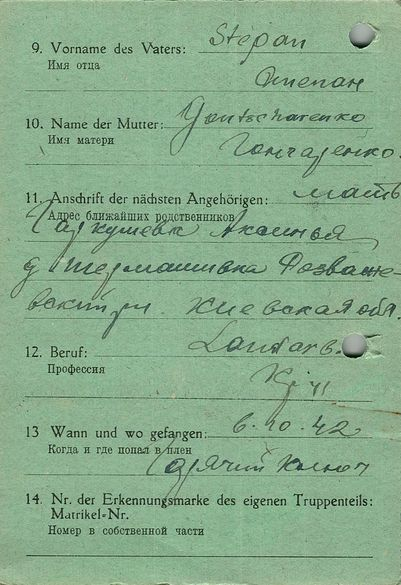 9. Vorname des Vaters: Stepan
Имя отца
Степан
10. Name der Mutter: Gontscharenko
Имя матери
Гончаренко.
11. Anschrift der nächsten Angehörigen: мать
Адрес ближайших родственников
Аксинья
д
р. Киевская обл.
12. Beruf: Landarb.
Профессия
13 Wann und wo gefangen: 6.10.42
Когда и где попал в плен
Горячий Ключ
14. Nr. der Erkennungsmarke des eigenen Truppenteils:
Matrikel-Nr.
Номер в собственной части